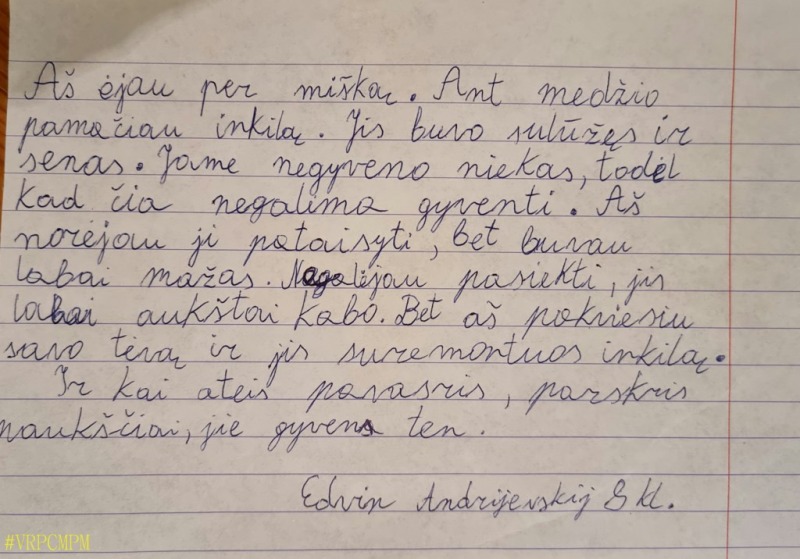 Aš ėjau per mišką. Ant medžio
pamačiau inkilą. Jis buvo sulūžęs ir
senas. Jame negyveno niekas, todėl
kad čia negalima gyventi. Aš
norėjau jį pataisyti, bet buvau
labai mažas. Negalėjau pasiekti, jis
labai aukštai kabo. Bet aš pakviesiu
savo tėvą ir jis suremontuos inkilą.
Ir kai ateis pavasris, parskris
paukščiai, jie gyvens ten.
Edvin Andrijevskij 8 kl.
#VRPCMPM